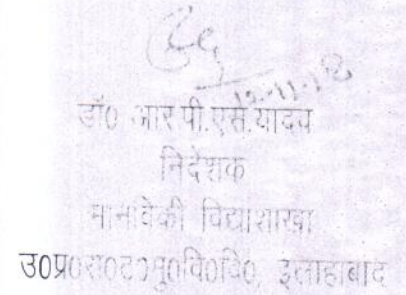 12-11-18
डॉ0 आर पी.एस.यादव
निदेशक
मानविकी विद्याशाखा
उ0प्र0रा0ट0मु0वि0वि0, इलाहाबाद